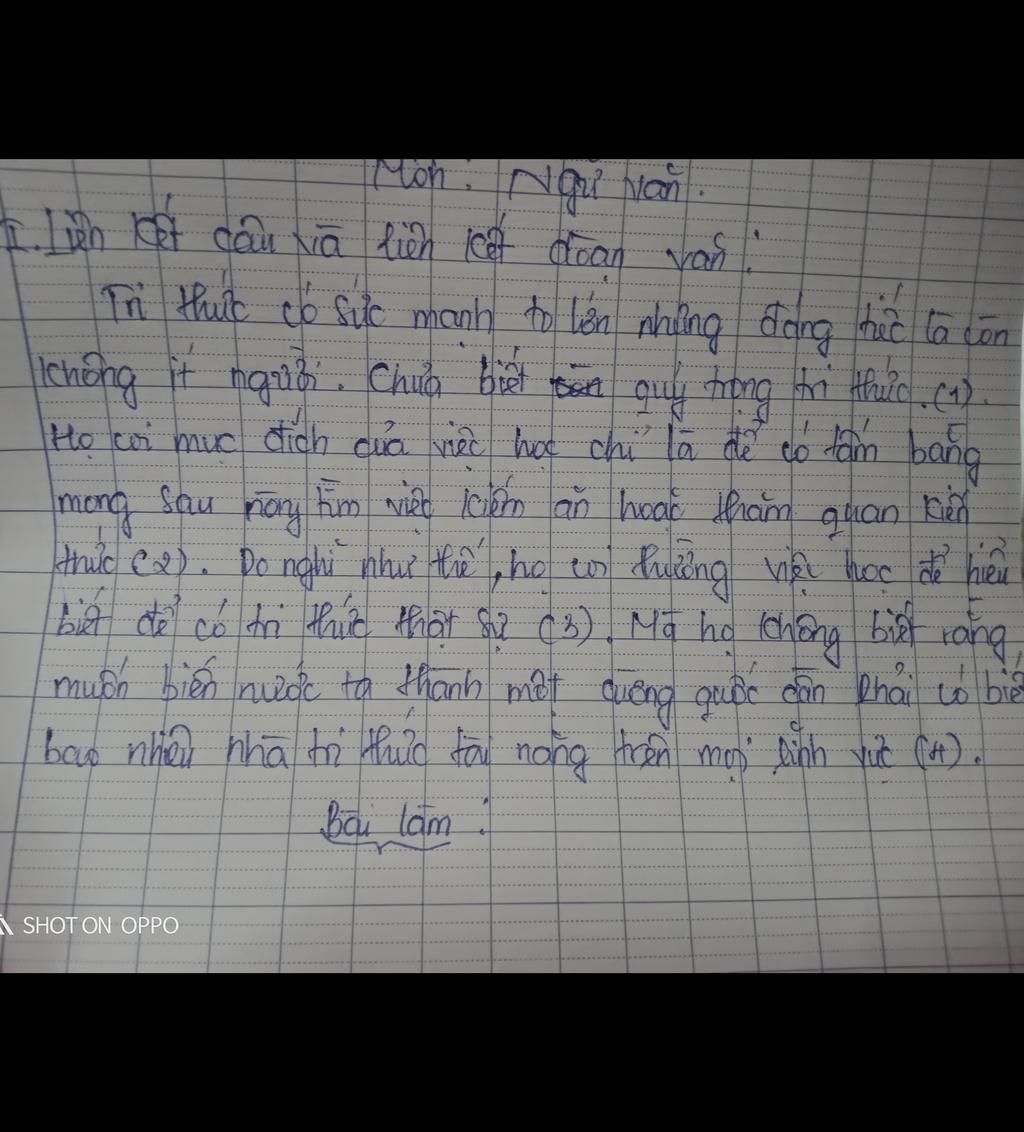 Môn : Ngữ văn.
I. Liên kết câu và liên kết đoạn văn :
Tri thức có sức mạnh to lớn nhưng đáng tiếc là còn
không ít người. Chưa biết quý trọng tri thức. (1).
Họ coi mục đích của việc học chỉ là để có tấm bằng
mong sau này tìm việc kiếm ăn hoặc thăm quan kiến
thức (2). Do nghĩ như thế, họ coi thường việc học để hiểu
biết để có tri thức thật sự (3). Mà họ không biết rằng,
muốn biến nước ta thành một cường quốc cần phải có biế
bao nhiêu nhà tri thức tài năng trên mọi lĩnh vực (4).
Bài làm :
SHOT ON OPPO